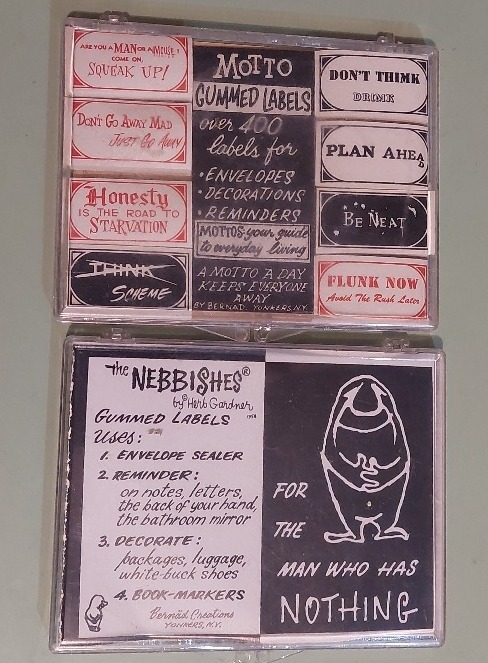 ARE YOU A MAN OR A MOUSE?
COME ON,
SQUEAK UP!
DON'T GO AWAY MAD
JUST GO AWAY
Honesty
IS THE ROAD TO
STARVATION
THINK
SCHEME
MOTTO
GUMMED LABELS
over 400
labels for
• ENVELOPES
• DECORATIONS
• REMINDERS
MOTTOS-your guide
to everyday living
A MOTTO A DAY
KEEPS EVERYONE
AWAY
BY BERNAD. YONKERS, N.Y.
DON'T THIMK
DRIMK
PLAN AHEAD
BE NEAT
FLUNK NOW
Avoid The Rush Later
the NEBBISHES®
by Herb Gardner
GUMMED LABELS
Uses:
1. ENVELOPE SEALER
2. REMINDER:
on notes, letters,
the back of your hand,
the bathroom mirror
3. DECORATE:
packages, luggage,
white-buck shoes
4. BOOK-MARKERS
Bernad Creations
YONKERS, N.Y.
FOR
THE
MAN WHO HAS
NOTHING